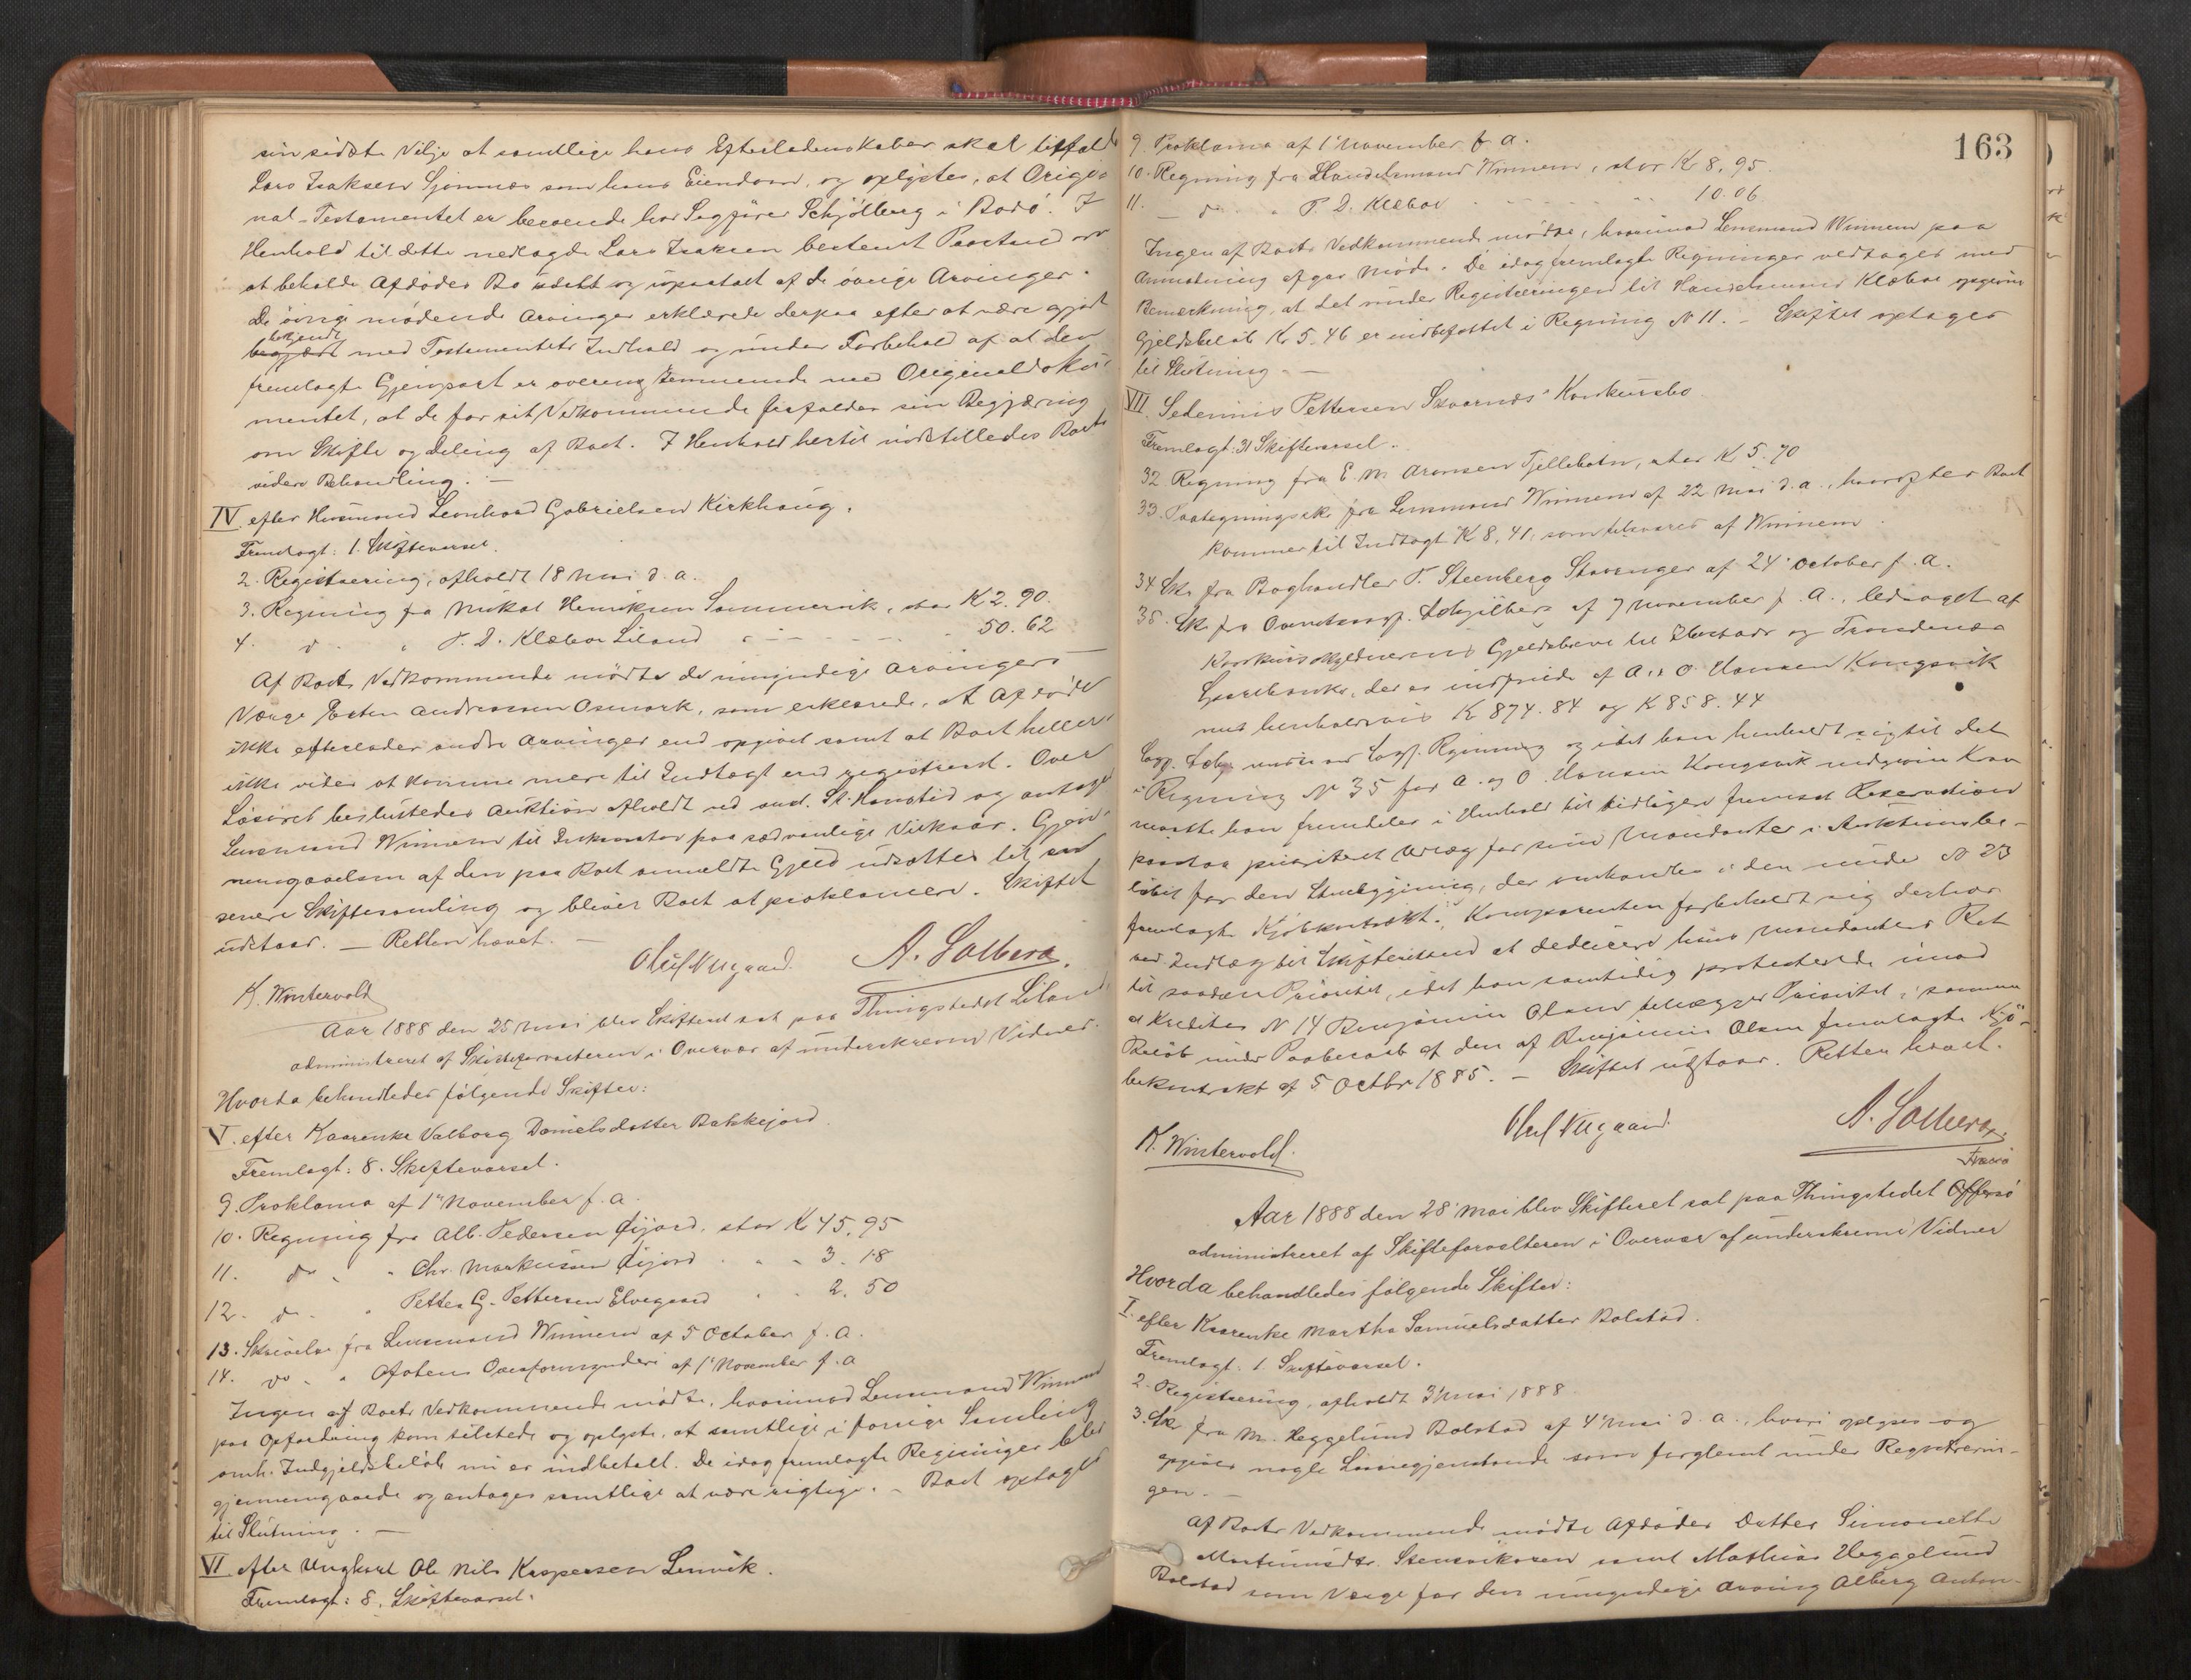 sin sidste Vilje at samtlige hans Efterladenskaber skal tilfalde
Lars Isaksen Sjonmæs som hans Eiendom, og oplystes, at Origi-
nal-Testamentet er beroende hos Sagfører Schjølberg i Bodø. I
Henhold til dette nedlagde Lars Isaksen bestemt Paastand om
at beholde Afdødes Bo udelt og upaatalt af de øvrige Arvinger.
De øvrige mødende Arvinger erklærede derpaa efter at være gjort
bekjendt med Testamentets Indhold og under Forbehold af at den
fremlagte Gjenpart er overensstemmende med Originaldoku-
mentet, at de for sit Vedkommende frafalder sin Begjæring
om Skifte og deling af Boet. I Henhold hertil indstilledes Boets
videre Behandling. —
IV. efter Husmand Leonhard Gabrielsen Kirkhaug.
Fremlagt: 1. Skiftevarsel.
2. Registrering, afholdt 18 Mai d. a.
3. Regning fra Mikal Henriksen Sommervik, stor K 2.90.
4. do " P. D. Klæboe Liland " - - - - 50.62
Af Boets Vedkommende mødte de umyndige Arvingers
Værge Peder Andreassen Osmark, som erklærede, at Afdøde
ikke efterlader andre Arvinger end opgivet samt at Boet heller
ikke vides at komme mere til Indtægt end registreret. Over
Løsøret besluttedes Auktion afholdt ved and. St. Hanstid og antoges
Lensmand Winnem til Inkassator paa sædvanlige Vilkaar. Gjen-
nemgaaelsen af den paa Boet anmeldte Gjeld udsættes til en
senere Skiftesamling og bliver Boet at proklamere. Skiftet
udstaar. — Retten hævet. —
Oluf Nygaard. A. Solberg.
K. Wintervold
Aar 1888 den 25 Mai blev Skifteret sat paa Thingstedet Liland,
administreret af Skifteforvalteren i Overvær af underskrevne Vidner.
Hvorda behandledes følgende Skifter:
V. efter Kaarenke Valborg Danielsdatter Bakkejord.
Fremlagt: 8. Skiftevarsel.
9. Proklama af 1' November f. a.
10. Regning fra Alb. Pedersen Øijord, stor K 45,95
11. do " " Chr. Markussen Øijord " " 3.18
12. do " Petter G. Pettersen Elvegaard " " 2.50
13. Skrivelse fra Lensmand Winnem af 5 October f. a.
14. do " " Ofotens Overformynderi af 1' November f. a
Ingen af Boets Vedkommende mødte, hvorimod Lensmand Winnem
paa Opfordring kom tilstede og oplyste, at samtlige i forrige Samling
omh. Indgjeldsbeløb nu er indbetalt. De idag fremlagte Regninger blev
gjennemgaaede og antages samtlige at være rigtige. — Boet optages
til Slutning. —
VI efter Ungkarl Ole Nils Kaspersen Lenvik.
Fremlagt: 8. Skiftevarsel.
163
9. Proklama af 1' November f. a.
10. Regning fra Handelsmand Winnem, stor K 8,95.
11. — do " " P. D. Klæboe - - - - - " " 10.06
Ingen af Boets Vedkommende mødte, hvorimod Lensmand Winnem paa
Anmodning afgav Møde. De idag fremlagte Regninger vedtages med
Bemærkning, at det under Registreringen til Handelsmand Klæboe opgivne
Gjeldsbeløb K 5.46 er indbefattet i Regning N 11. — Skiftet optages
til Slutning. —
VII. Sedenius Pettersen Skaarnæs' Konkursbo.
Fremlagt: 31 Skiftevarsel.
32. Regning fra E. M. Aronsen Fjelleboten, stor K 5.70
33. Paategningssk. fra Lensmand Winnem af 22 Mai d. a., hvorefter Boet
kommer til Indtægt K 8,41, som bevares af Winnem.
34 Sk. fra Boghandler P. Steenberg Stavanger af 24' October f. a.
35. Sk. fra Overretssagf. Schjølberg af 7 November f. a., ledsaget af
Konkursskyldnerens Gjeldsbreve til Ibestads og Trondenæs
Sparebanke, der er indfriede af A. & O. Hansen Kongsvik
med henholdsvis K 874.84 og K 858.44
Sagf. Schj. mødte ved Sagf. Rynning og idet han henholdt sig til det
i Regning N 35 for A. og O. Hansen Kongsvik nedgivne Krav
maatte han fremdeles i Henhold til tidligere fremsat Reservation
paastaa prioriteret Udlæg for sine Mandanter i Auktionsbe-
løbet for den Stuebygning, der omhandles i den under N 23
fremlagte Kjøbekontrakt. Komparenten forbeholdt sig derhos
ved Indlæg til Skifteretten at deducere sine Mandanters Ret
til saadan Prioritet, idet han samtidig protesterede imod
at Kreditor N 14 Benjamin Olsen tillægges Prioritet i samme
Beløb under Paaberaab af den af Benjamin Olsen fremlagte Kjø-
bekontrakt af 5 Octbr 1885. — Skiftet udstaar. Retten hævet.
Oluf Nygaard. A. Solberg.
K. Wintervold.
Aar 1888 den 28' Mai blev Skifteret sat paa Thingstedet Offersø
administreret af Skifteforvalteren i Overvær af underskrevne Vidner
Hvorda behandledes følgende Skifter:
I. efter Kaarenke Martha Samuelsdatter Bolstad.
Fremlagt: 1. Skiftevarsel.
2. Registrering, afholdt 3 Mai 1888
3. Sk. fra M. Heggelund Bolstad af 4' Mai d. a., hvori oplyses og
opgives nogle Løsøregjenstande som forglemt under Registrerin-
gen. —
Af Boets Vedkommende mødte Afdødes Datter Simonette
Martinusdtr. Stensvikoren samt Mathias Heggelund
Bolstad som Værge for den umyndige Arving Alberg Anton-